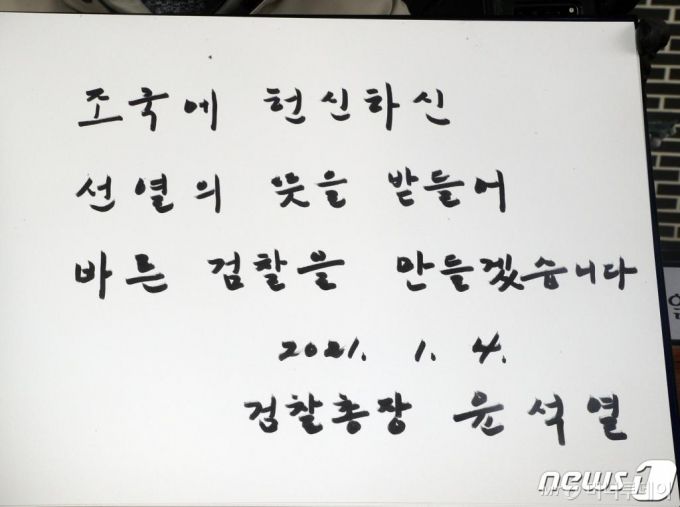 조국에 헌신하신
선열의 뜻을 받들어
바른 검찰을 만들겠습니다
2021. 1. 4.
검찰총장 윤석열
news1
머니투데이